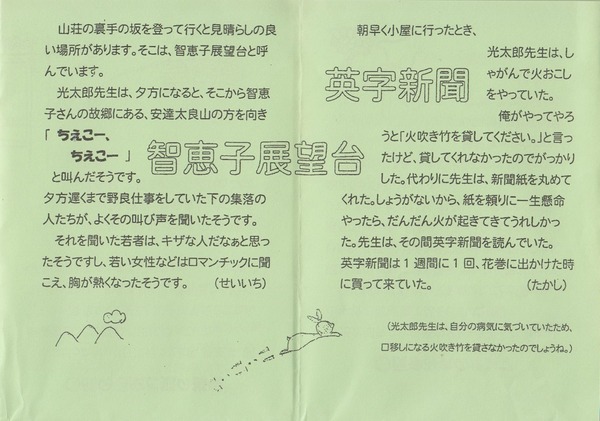 山荘の裏手の坂を登って行くと見晴らしの良
い場所があります。そこは、智恵子展望台と呼
んでいます。
光太郎先生は、夕方になると、そこから智恵
子さんの故郷にある、安達太良山の方を向き
「ちえこー、
ちえこー」
と叫んだそうです。
智恵子展望台
夕方遅くまで野良仕事をしていた下の集落の
人たちが、よくその叫び声を聞いたそうです。
それを聞いた若者は、キザな人だなぁと思っ
たそうですし、若い女性などはロマンチックに聞
こえ、胸が熱くなったそうです。　（せいいち）
朝早く小屋に行ったとき、
光太郎先生は、し
ゃがんで火おこし
をやっていた。
英字新聞
俺がやってやろ
うと「火吹き竹を貸してください。」と言っ
たけど、貸してくれなかったのでがっかり
した。代わりに先生は、新聞紙を丸めて
くれた。しょうがないから、紙を頼りに一生懸命
やったら、だんだん火が起きてきてうれしかっ
た。先生は、その間英字新聞を読んでいた。
英字新聞は１週間に１回、花巻に出かけた時
に買って来ていた。　（たかし）
（光太郎先生は、自分の病気に気づいていたため、
口移しになる火吹き竹を貸さなかったのでしょうね。）